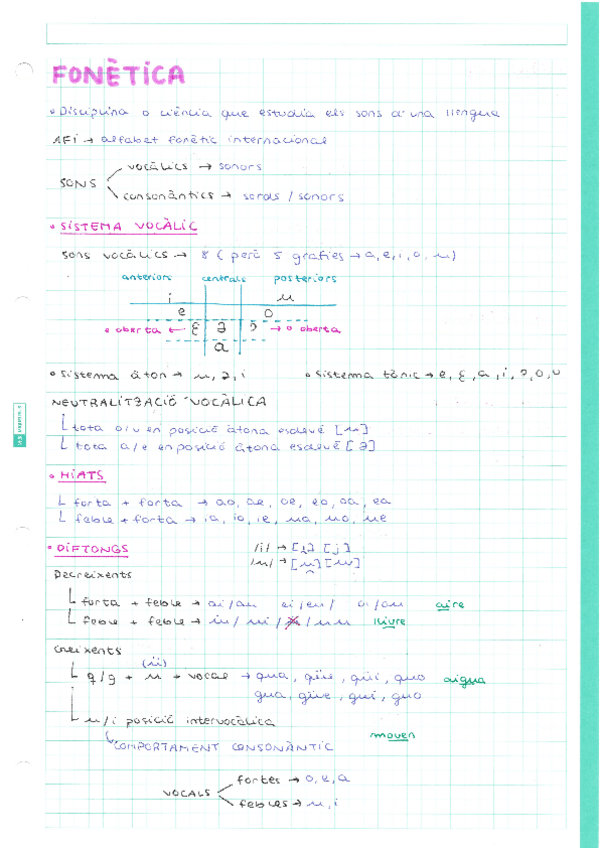 FONÈTICA
• Disciplina o ciència que estudia els sons d'una llengua
AFI → alfabet fonètic internacional
SONS
vocàlics → sonors
consonàntics → sords / sonors
• SISTEMA VOCÀLIC
sons vocàlics → 8 (però 5 grafies → a, e, i, o, u)
anteriors centrals posteriors
i u
e o
e oberta ← ɛ ə ɔ → o oberta
a
• sistema àton → u, ə, i • sistema tònic → e, ɛ, a, i, ɔ, o, u
NEUTRALITZACIÓ VOCÀLICA
tota o/u en posició àtona esdevé [u]
tota a/e en posició àtona esdevé [ə]
• HIATS
forta + forta → ao, ae, oe, eo, oa, ea
feble + forta → ia, io, ie, ua, uo, ue
• DIFTONGS /i/ → [i̯] [j]
/u/ → [u̯] [w]
Decreixents
forta + feble → ai/au ei/eu/ oi/ou aire
feble + feble → iu/ ui/ /uu lliure
Creixents
(ü)
q/g + u + vocal → qua, qüe, qüi, quo aigua
gua, güe, güi, guo
u/i posició intervocàlica
COMPORTAMENT CONSONÀNTIC mouen
VOCALS
fortes → o, e, a
febles → u, i